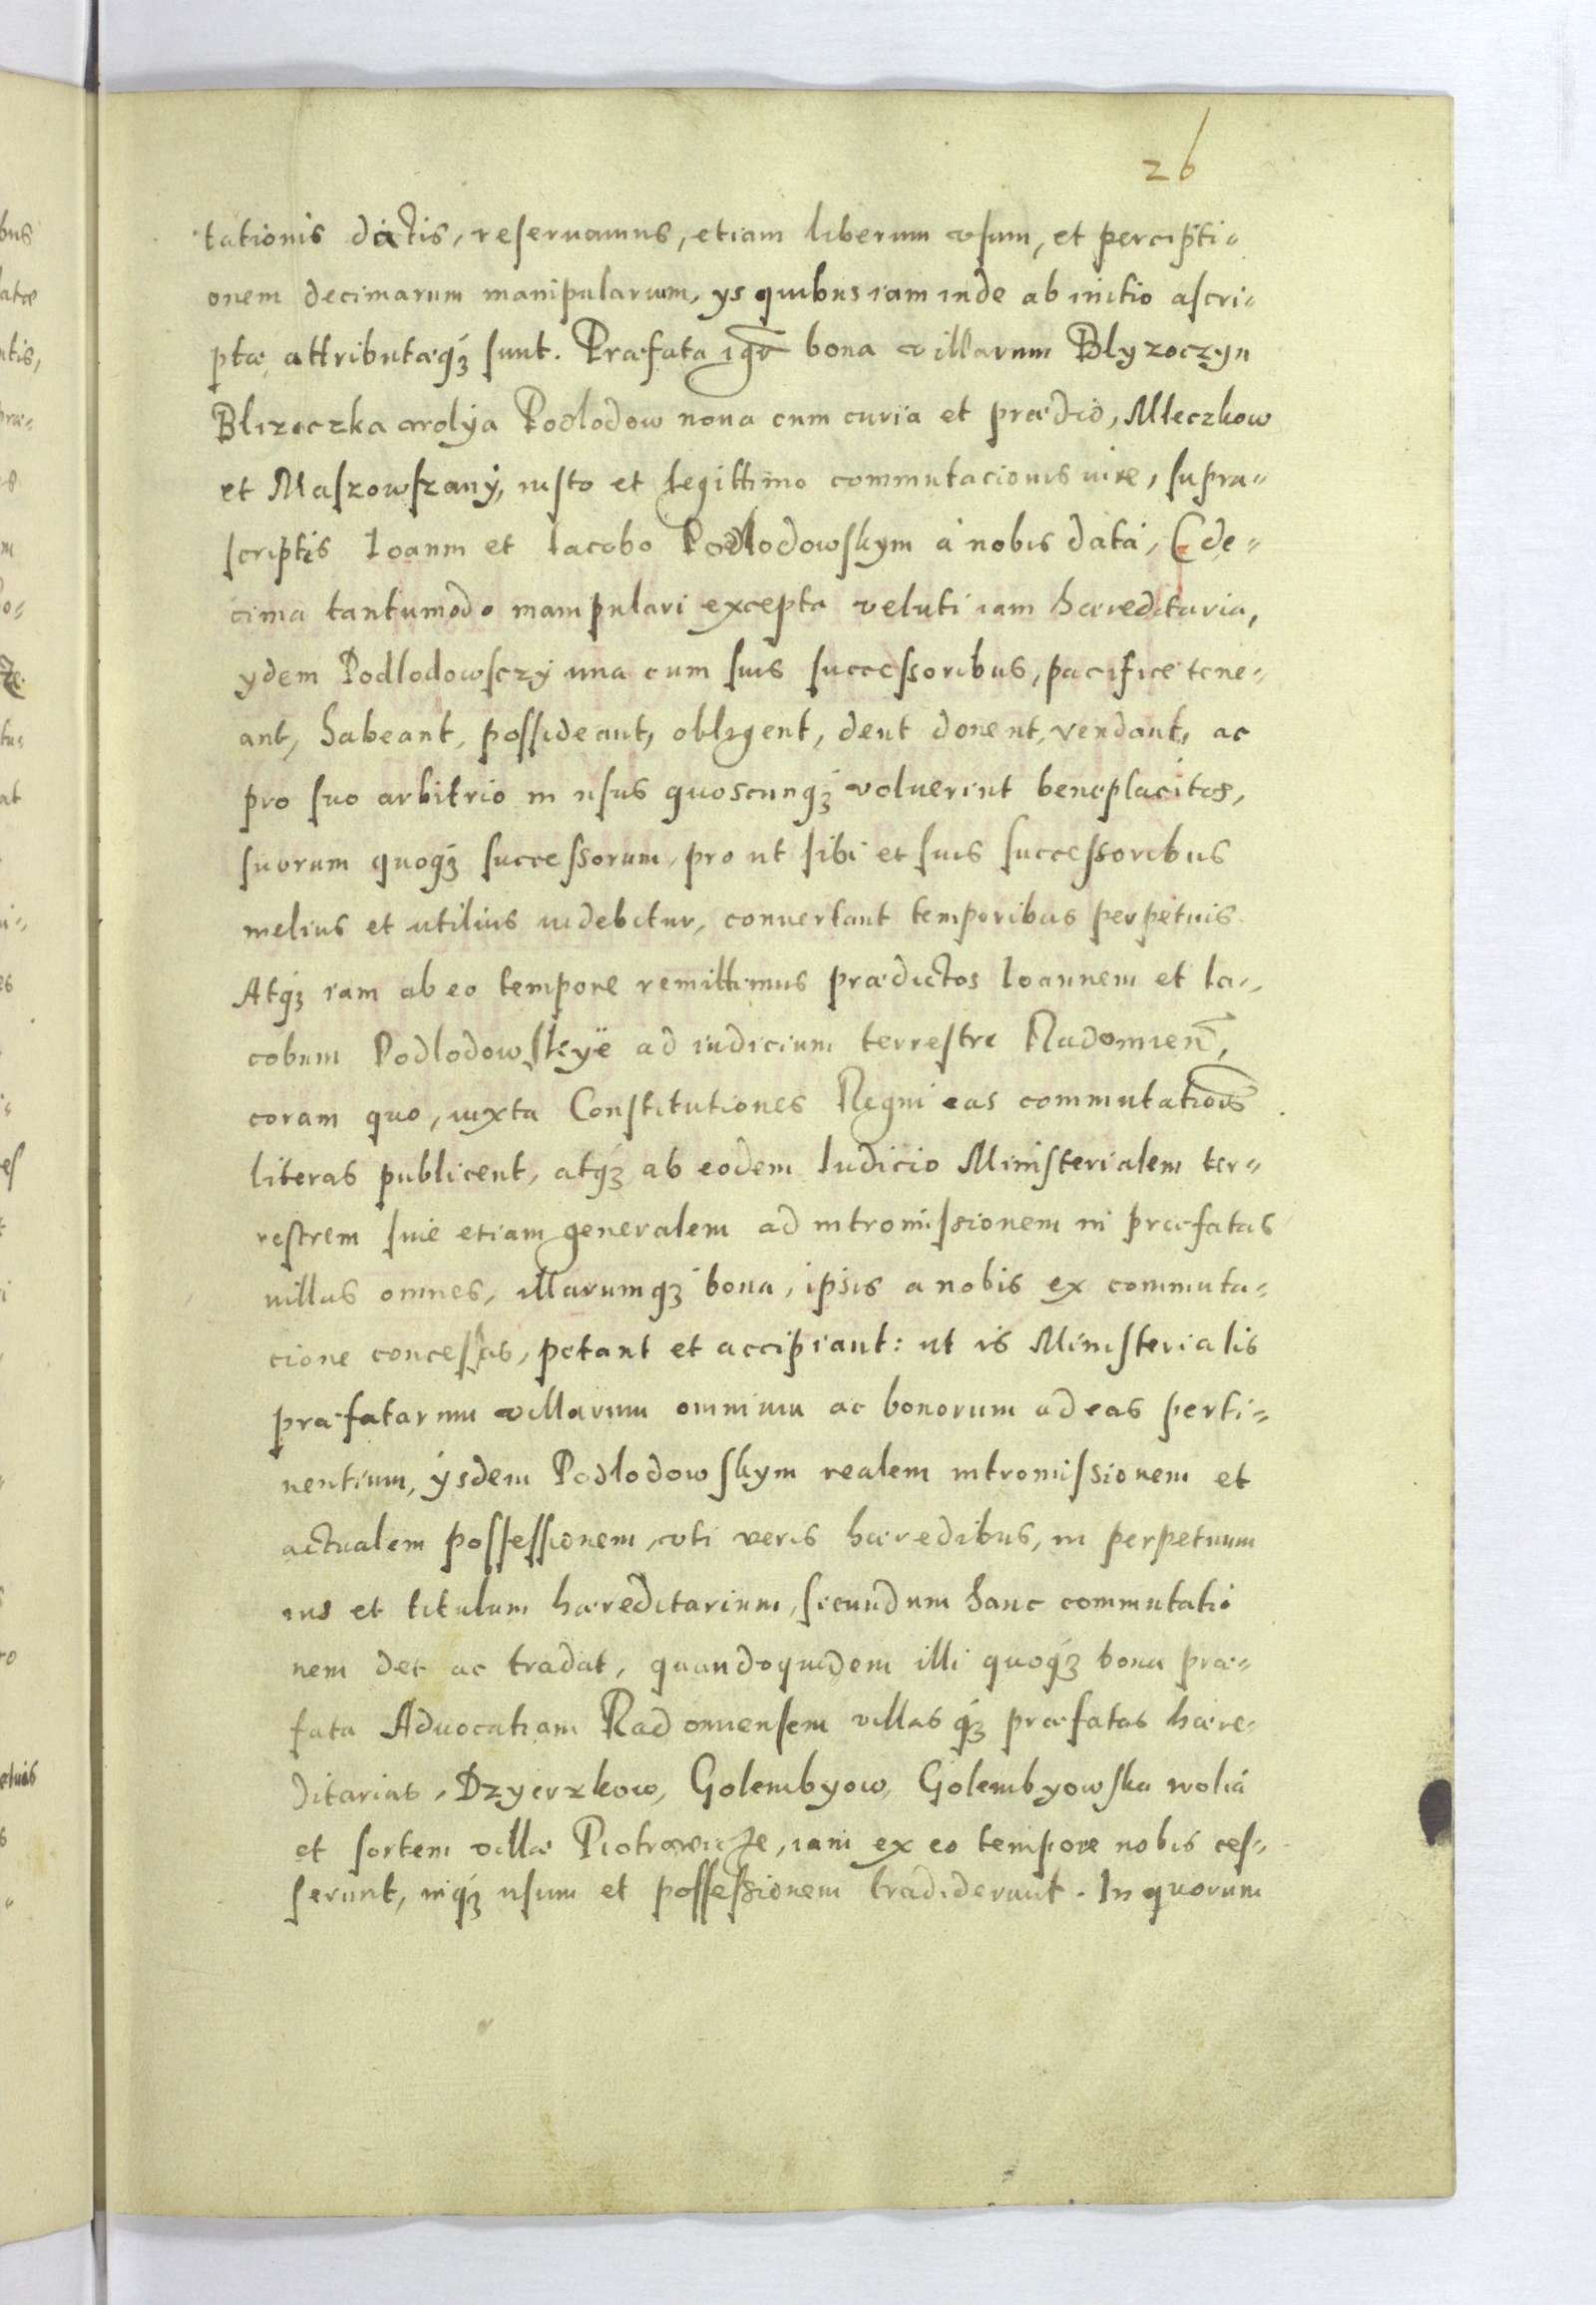 26
tationis dictis, reseruamus, etiam liberum vsum, et percipti-
onem decimarum manipularium, ys quibus iam inde ab initio ascri-
ptæ attributæq3 sunt. Præfata igr bona villarum Blyzoczyn
Blizoczka wolya Podlodow noua cum curia et prædio, Mleczkow
et Maszowszany, iusto et legittimo commutacionis iure, supra-
scriptis Ioanni et Iacobo Podlodowskym à nobis data, (de-
cima tantumodo manipulari excepta veluti iam hæreditaria,
ydem Podlodowsczy una cum suis successoribus, pacifice tene-
ant, habeant, possideant, obligent, dent donent, vendant, ac
pro suo arbitrio in usus quoscunq3 voluerint beneplacitos,
suorum quoq3 successorum, pro ut sibi et suis successoribus
melius et utilius uidebitur, conuertant temporibus perpetuis
Atq3 iam ab eo tempore remittimus prædictos Ioannem et Ia-
cobum Podlodowskye ad iudicium terrestre Radomieñ,
coram quo, iuxta Constitutiones Regni eas commutatiois
literas publicent, atq3 ab eodem Iudicio Ministerialem ter-
restrem siue etiam generalem ad intromissionem in præfatas
uillas omnes, illarumq3 bona, ipsis a nobis ex commuta-
cione concessas, petant et accipiant: ut is Ministerialis
præfatarum villarum omnium ac bonorum ad eas perti-
nentium, ysdem Podlodowskym realem intromissionem et
actualem possessionem, vti veris hæredibus, in perpetuum
ius et titulum hæreditarium, secundum hanc commutatio
nem det ac tradat, quandoquidem illi quoq3 bona præ-
fata Aduocatiam Radomiensem villasq3 præfatas hære-
ditarias, Dzyerzkow, Golembyow, Golembyowska wolia
et sortem villæ Piotrowicze, iam ex eo tempore nobis ces-
serunt, inq3 usum et possessionem tradiderunt. In quorum